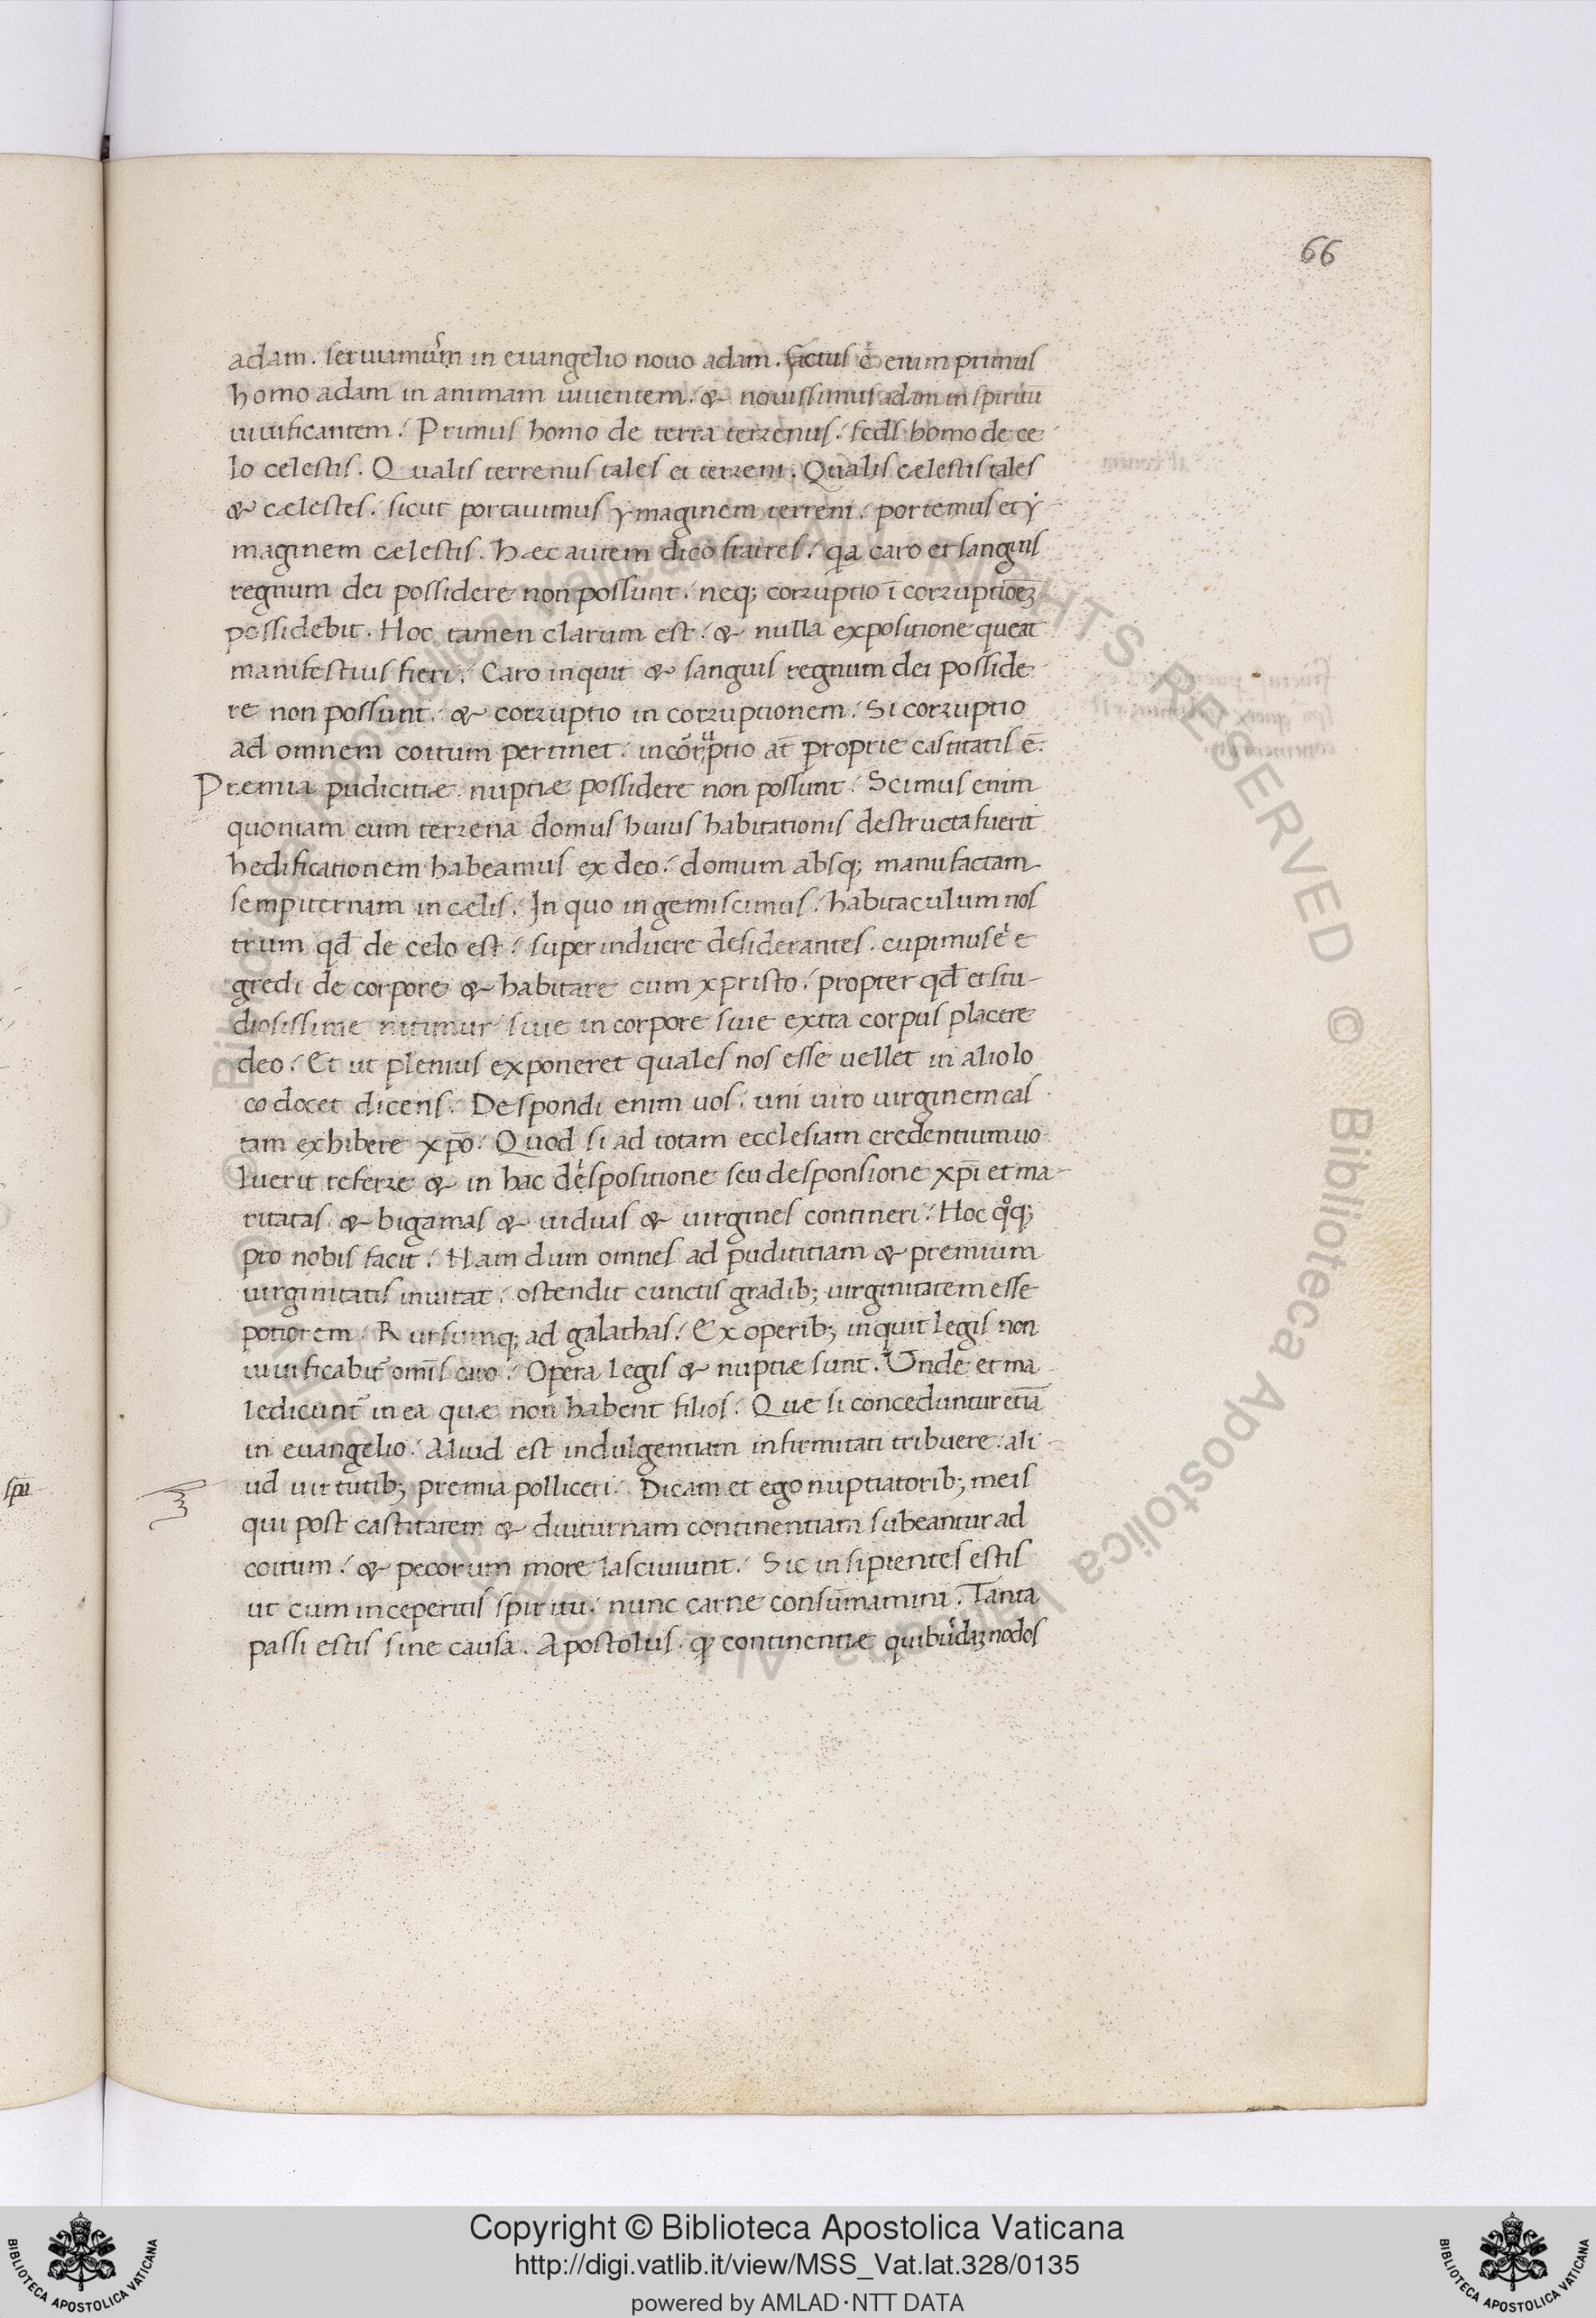 66
adam. seruiamus in euangelio nouo adam. factus ē enim primus
homo adam in animam uiuentem. & nouissimus adam in spiritū
uiuificantem. Primus homo de terra terrenus. scds homo de ce
lo celestis. Qualis terrenus tales et terreni. Qualis cælestis tales
& cælestes. sicut portauimus ymaginem terreni. portemus et y
maginem cælestis. hæc autem dico fratres. qa caro et sanguis
regnum dei possidere non possunt. neq; corruptio ī corruptiōeʒ
possidebit. Hoc tamen clarum est. & nulla expositione queat
manifestius fieri. Caro inquit & sanguis regnum dei posside
re non possunt. & corruptio in corruptionem. Si corruptio
ad omnem coitum pertinet. incorruptio at̄ proprie castitatis ē.
Premia pudicitiæ nuptiæ possidere non possunt. Scimus enim
quoniam cum terrena domus huius habitationis destructa fuerit
hedificationem habeamus ex deo. domum absq; manufactam
sempiternam in cælis. In quo ingemiscimus. habitaculum nos
trum qđ de celo est. superinduere desiderantes. cupimus e
gredi de corpore & habitare cum xpristo. propter qđ et stu-
diosissime nitimur siue in corpore siue extra corpus placere
deo. Et ut plenius exponeret quales nos esse uellet in alio lo
co docet dicens. Despondi enim uos. uni uiro uirginem cas
tam exhibere xp̄o. Quod si ad totam ecclesiam credentium uo
luerit referre & in hac despositione seu desponsione xp̄i et ma-
ritatas & bigamas & uiduas & uirgines contineri. Hoc qͦq;
pro nobis facit. Nam dum omnes ad pudititiam & premium
uirginitatis inuitat. ostendit cunctis gradib; uirginitatem esse
potiorem. Rursumq; ad galathas. Ex operib; inquit legis non
uiuificabit̃ omīs caro. Opera legis & nuptiæ sunt. Unde et ma
ledicunt̃ in ea quæ non habent filios. Quæ si conceduntur etiā
in euangelio. Aliud est indulgentiam infirmitati tribuere. ali
ud uirtutib; premia polliceri. Dicam et ego nuptiatorib; meis
qui post castitatem & diuturnam continentiam subeantur ad
coitum. & pecorum more lasciuiunt. Sic insipientes estis
ut cum inceperitis spiritu. nunc carne consumamini. Tanta
passi estis sine causa. Apostolus. continentiæ quibusdaʒ nodos
spū
© Biblioteca Apostolica Vaticana ALL RIGHTS RESERVED © Biblioteca Apostolica Vaticana ALL
Copyright © Biblioteca Apostolica Vaticana
http://digi.vatlib.it/view/MSS_Vat.lat.328/0135
powered by AMLAD·NTT DATA
BIBLIOTECA APOSTOLICA VATICANA
BIBLIOTECA APOSTOLICA VATICANA